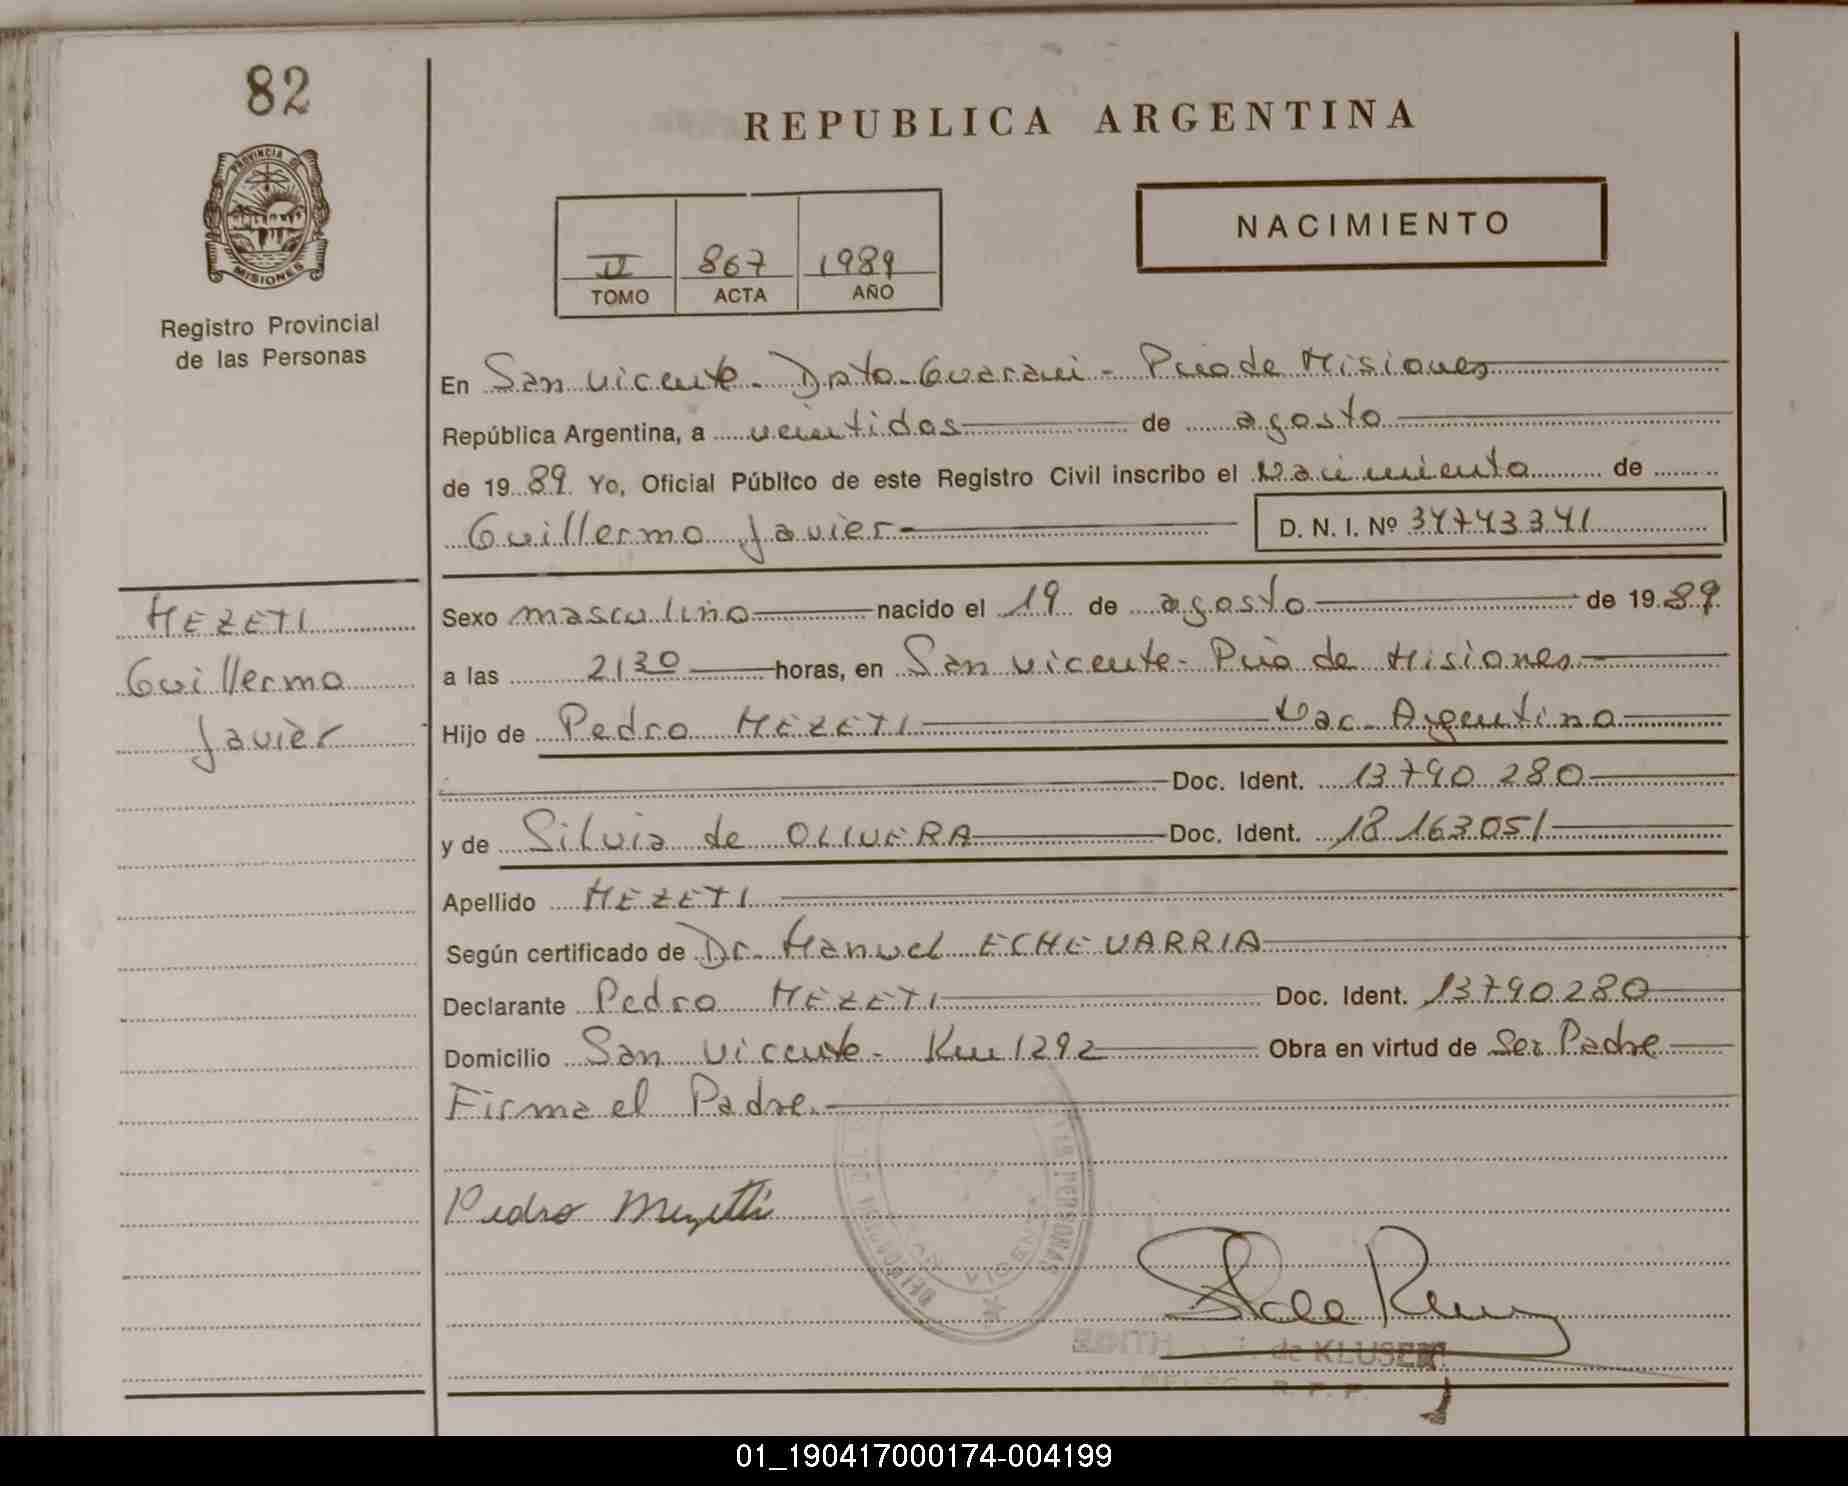 82
PROVINCIA DE
MISIONES
Registro Provincial
de las Personas
REPUBLICA ARGENTINA
NACIMIENTO
II 867 1989
TOMO ACTA AÑO
En San Vicente - Dpto. Guarani - Pcia de Misiones
República Argentina, a veintidos de agosto
de 1989 Yo, Oficial Público de este Registro Civil inscribo el Nacimiento de
Guillermo Javier D. N. I. Nº 34743341
MEZETI
Guillermo
Javier
Sexo masculino nacido el 19 de agosto de 1989
a las 2130 horas, en San Vicente - Pcia de Misiones
Hijo de Pedro MEZETI Nac. Argentina
Doc. Ident. 13.790.280
y de Silvia de OLIVERA Doc. Ident. 18.163.051
Apellido MEZETI
Según certificado de Dr. Manuel ECHEVARRIA
Declarante Pedro MEZETI Doc. Ident. 13.790.280
Domicilio San Vicente - Km 1292 Obra en virtud de Ser Padre
Firma el Padre.
Pedro Mezetti
de KLUSEN
R. P. P.
01_190417000174-004199